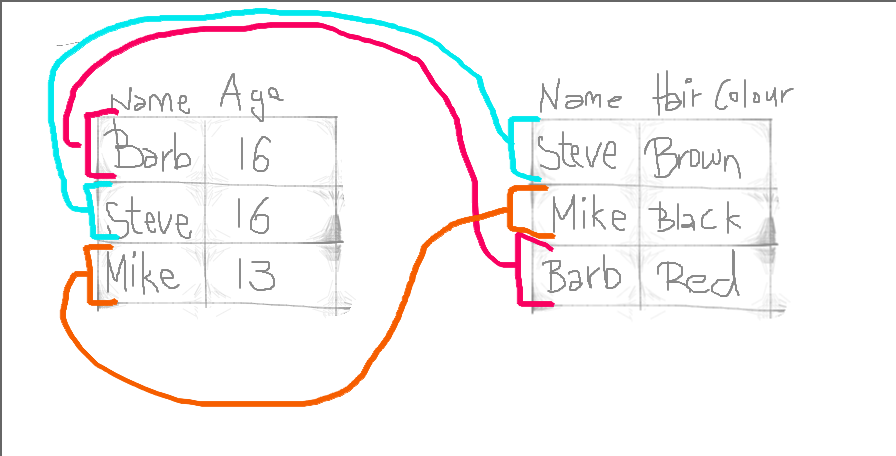 Name Age
Barb 16
Steve 16
Mike 13
Name Hair Colour
Steve Brown
Mike Black
Barb Red